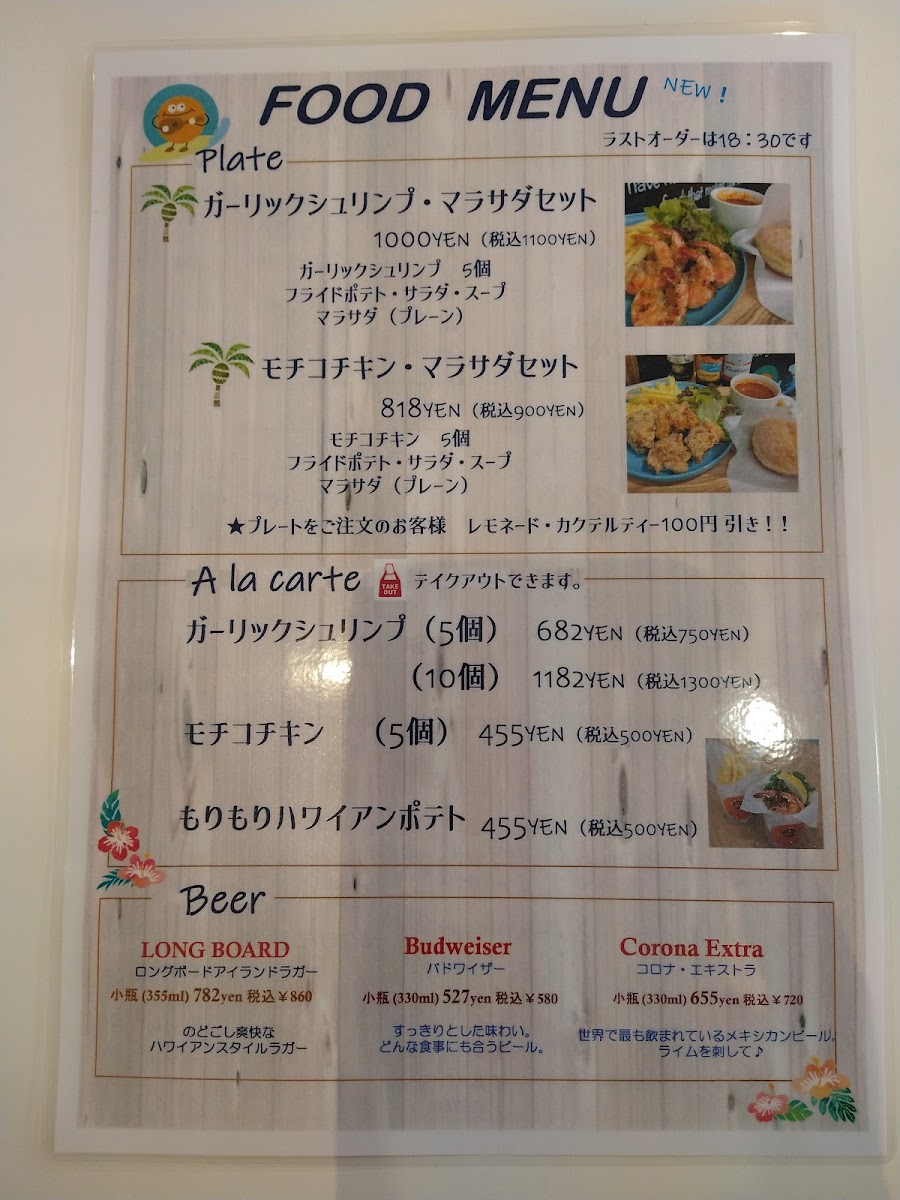 FOOD MENU NEW!
ラストオーダーは18：30です
Plate
ガーリックシュリンプ・マラサダセット
1000YEN（税込1100YEN）
ガーリックシュリンプ　5個
フライドポテト・サラダ・スープ
マラサダ（プレーン）
モチコチキン・マラサダセット
818YEN（税込900YEN）
モチコチキン　5個
フライドポテト・サラダ・スープ
マラサダ（プレーン）
★プレートをご注文のお客様　レモネード・カクテルティー100円 引き！！
A la carte TAKE OUT テイクアウトできます。
ガーリックシュリンプ（5個）　682YEN（税込750YEN）
（10個）　1182YEN（税込1300YEN）
モチコチキン　（5個）　455YEN（税込500YEN）
もりもりハワイアンポテト　455YEN（税込500YEN）
Beer
LONG BOARD
ロングボードアイランドラガー
小瓶 (355ml) 782yen 税込￥860
のどごし爽快な
ハワイアンスタイルラガー
Budweiser
バドワイザー
小瓶 (330ml) 527yen 税込￥580
すっきりとした味わい。
どんな食事にも合うビール。
Corona Extra
コロナ・エキストラ
小瓶 (330ml) 655yen 税込￥720
世界で最も飲まれているメキシカンビール。
ライムを刺して♪